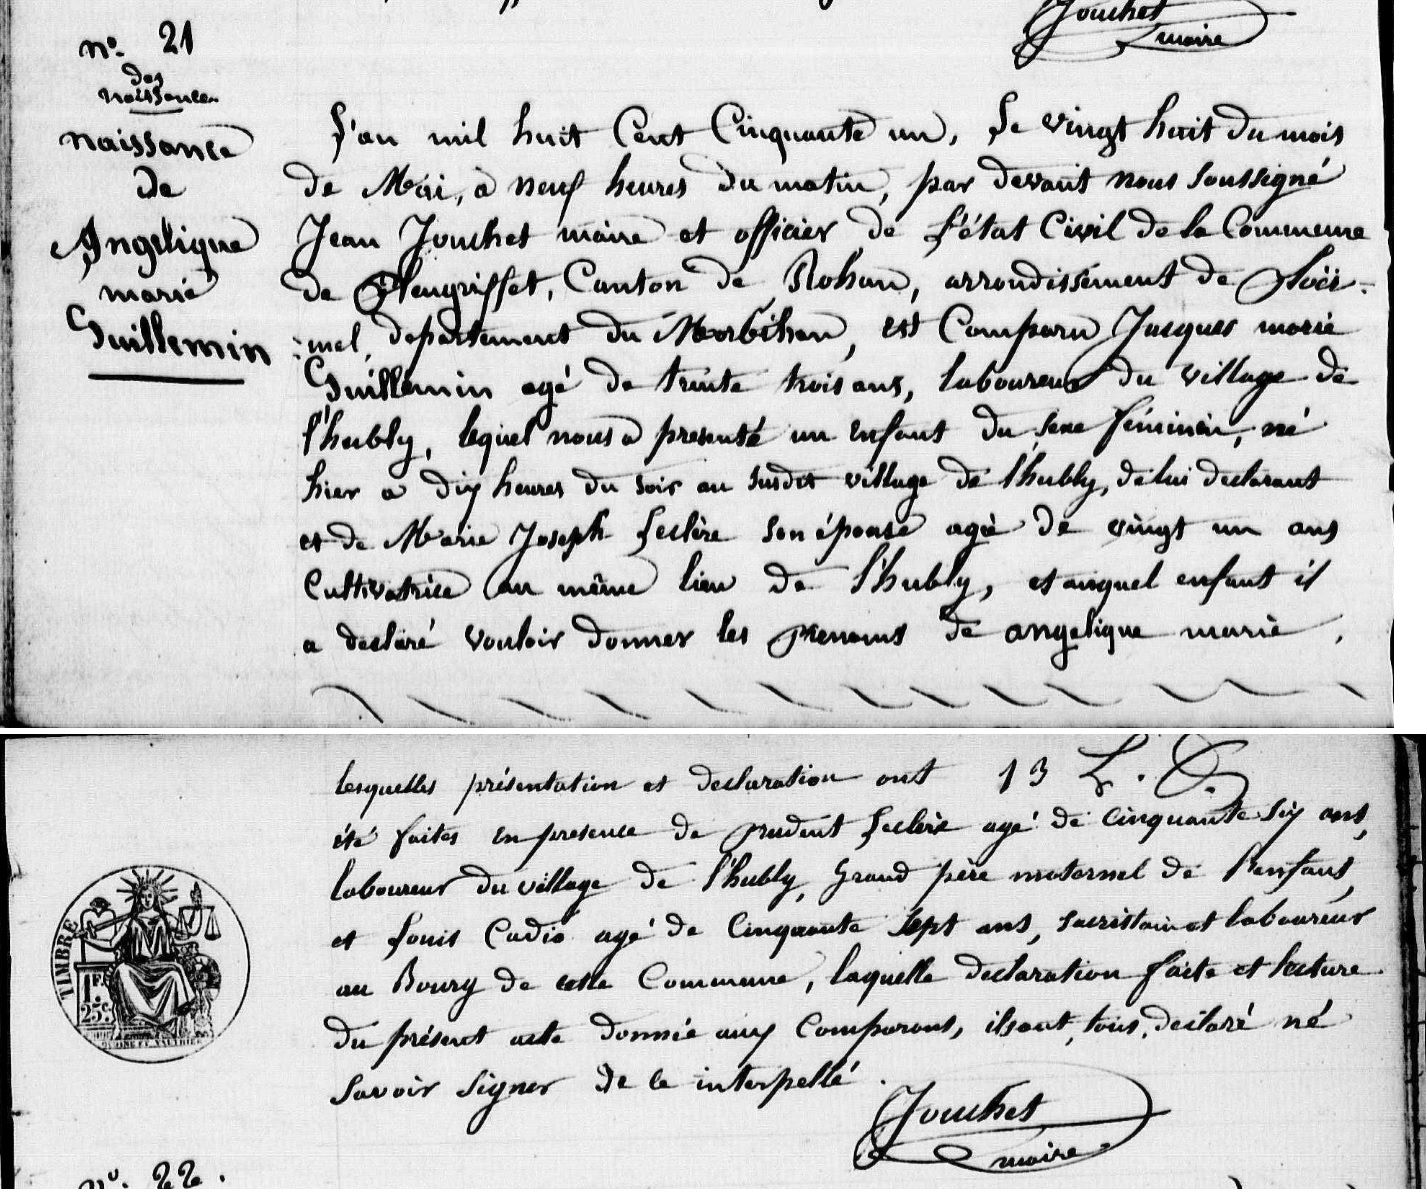 Jouchet
maire
n°. 21
des
naissances
naissance
de
Angelique
marie
Guillemin
L'an mil huit Cent Cinquante un, Le vingt huit du mois
de Mai, a neuf heures du matin, par devant nous Soussigné
Jean Jouchet maire et officier de L'état Civil de la Commune
de Pleugriffet, Canton de Rohan, arrondissement de Ploër=
=mel, departement du Morbihan, est Comparu Jacques marie
Guillemin agé de trente trois ans, laboureur du village de
l'hubly, lequel nous a presenté un enfant du sexe féminin, né
hier a dix heures du soir au susdit village de l'hubly, de lui declarant
et de Marie Joseph Leclère Son épouse agé de vingt un ans
Cultivatrice au même lieu de l'hubly, et auquel enfant il
a declaré vouloir donner les prenoms de angelique marie.
lesquelles présentation et declaration ont 13
été faites en presence de prudent Leclère agé de cinquante six ans,
laboureur du village de l'hubly, Grand père maternel de l'enfant,
et Louis Cadio agé de Cinquante Sept ans, sacristain et laboureur
au Bourg de cette Commune, laquelle declaration faite et lecture
du présent acte donnée aux Comparans, ils ont, tous, declaré né
Savoir Signer de ce interpellé.
TIMBRE
1F.
25c.
Jouchet
maire
n°. 22.